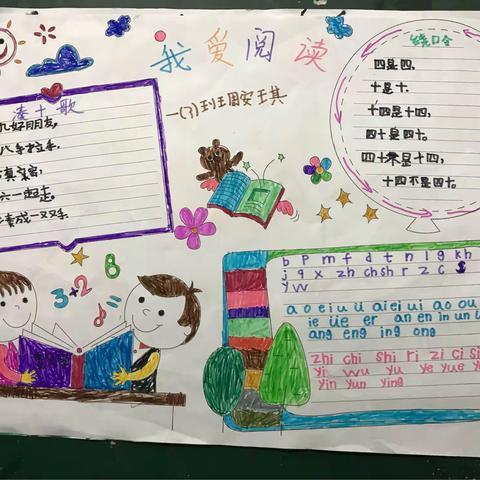 我爱阅读
一(7)班周安琪
凑十歌
九好朋友,
八手拉手,
真亲密,
六一起走,
凑成一双手
绕口令
四是四,
十是十.
十四是十四,
四十是四十.
四十来是十四,
十四不是四十.
3+2
8
b p m f d t n l g k h
j q x zh ch sh r z c s
y w
a o e i u ü ai ei ui ao ou
ie üe er an en in un
ang eng ing ong
zhi chi shi ri zi ci si
yi wu yu ye yue
yin yun ying